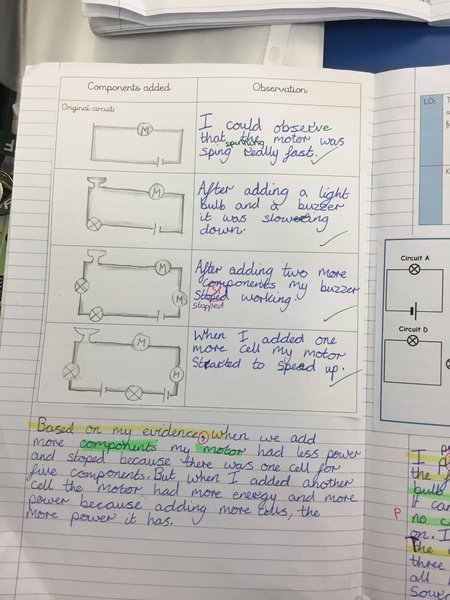 Components added
Observation
Original circuit:
M
I could observe
that the motor was
spinning
sping really fast.
M
After adding a light
bulb and a buzzer
it was slowering
down.
M
M
After adding two more
components my buzzer
Stoped working.
stopped
M
M
When I added one
more cell my motor
started to speed up.
Based on my evidence, when we add
more components my motor had less power
and stoped because there was one cell for
five components. But when I added another
cell the motor had more energy and more
power because adding more cells, the
more power it has.
LO:
Circuit A
Circuit D
I
the
bulb
it can
P
no c
on. I
The
three
all
Sour